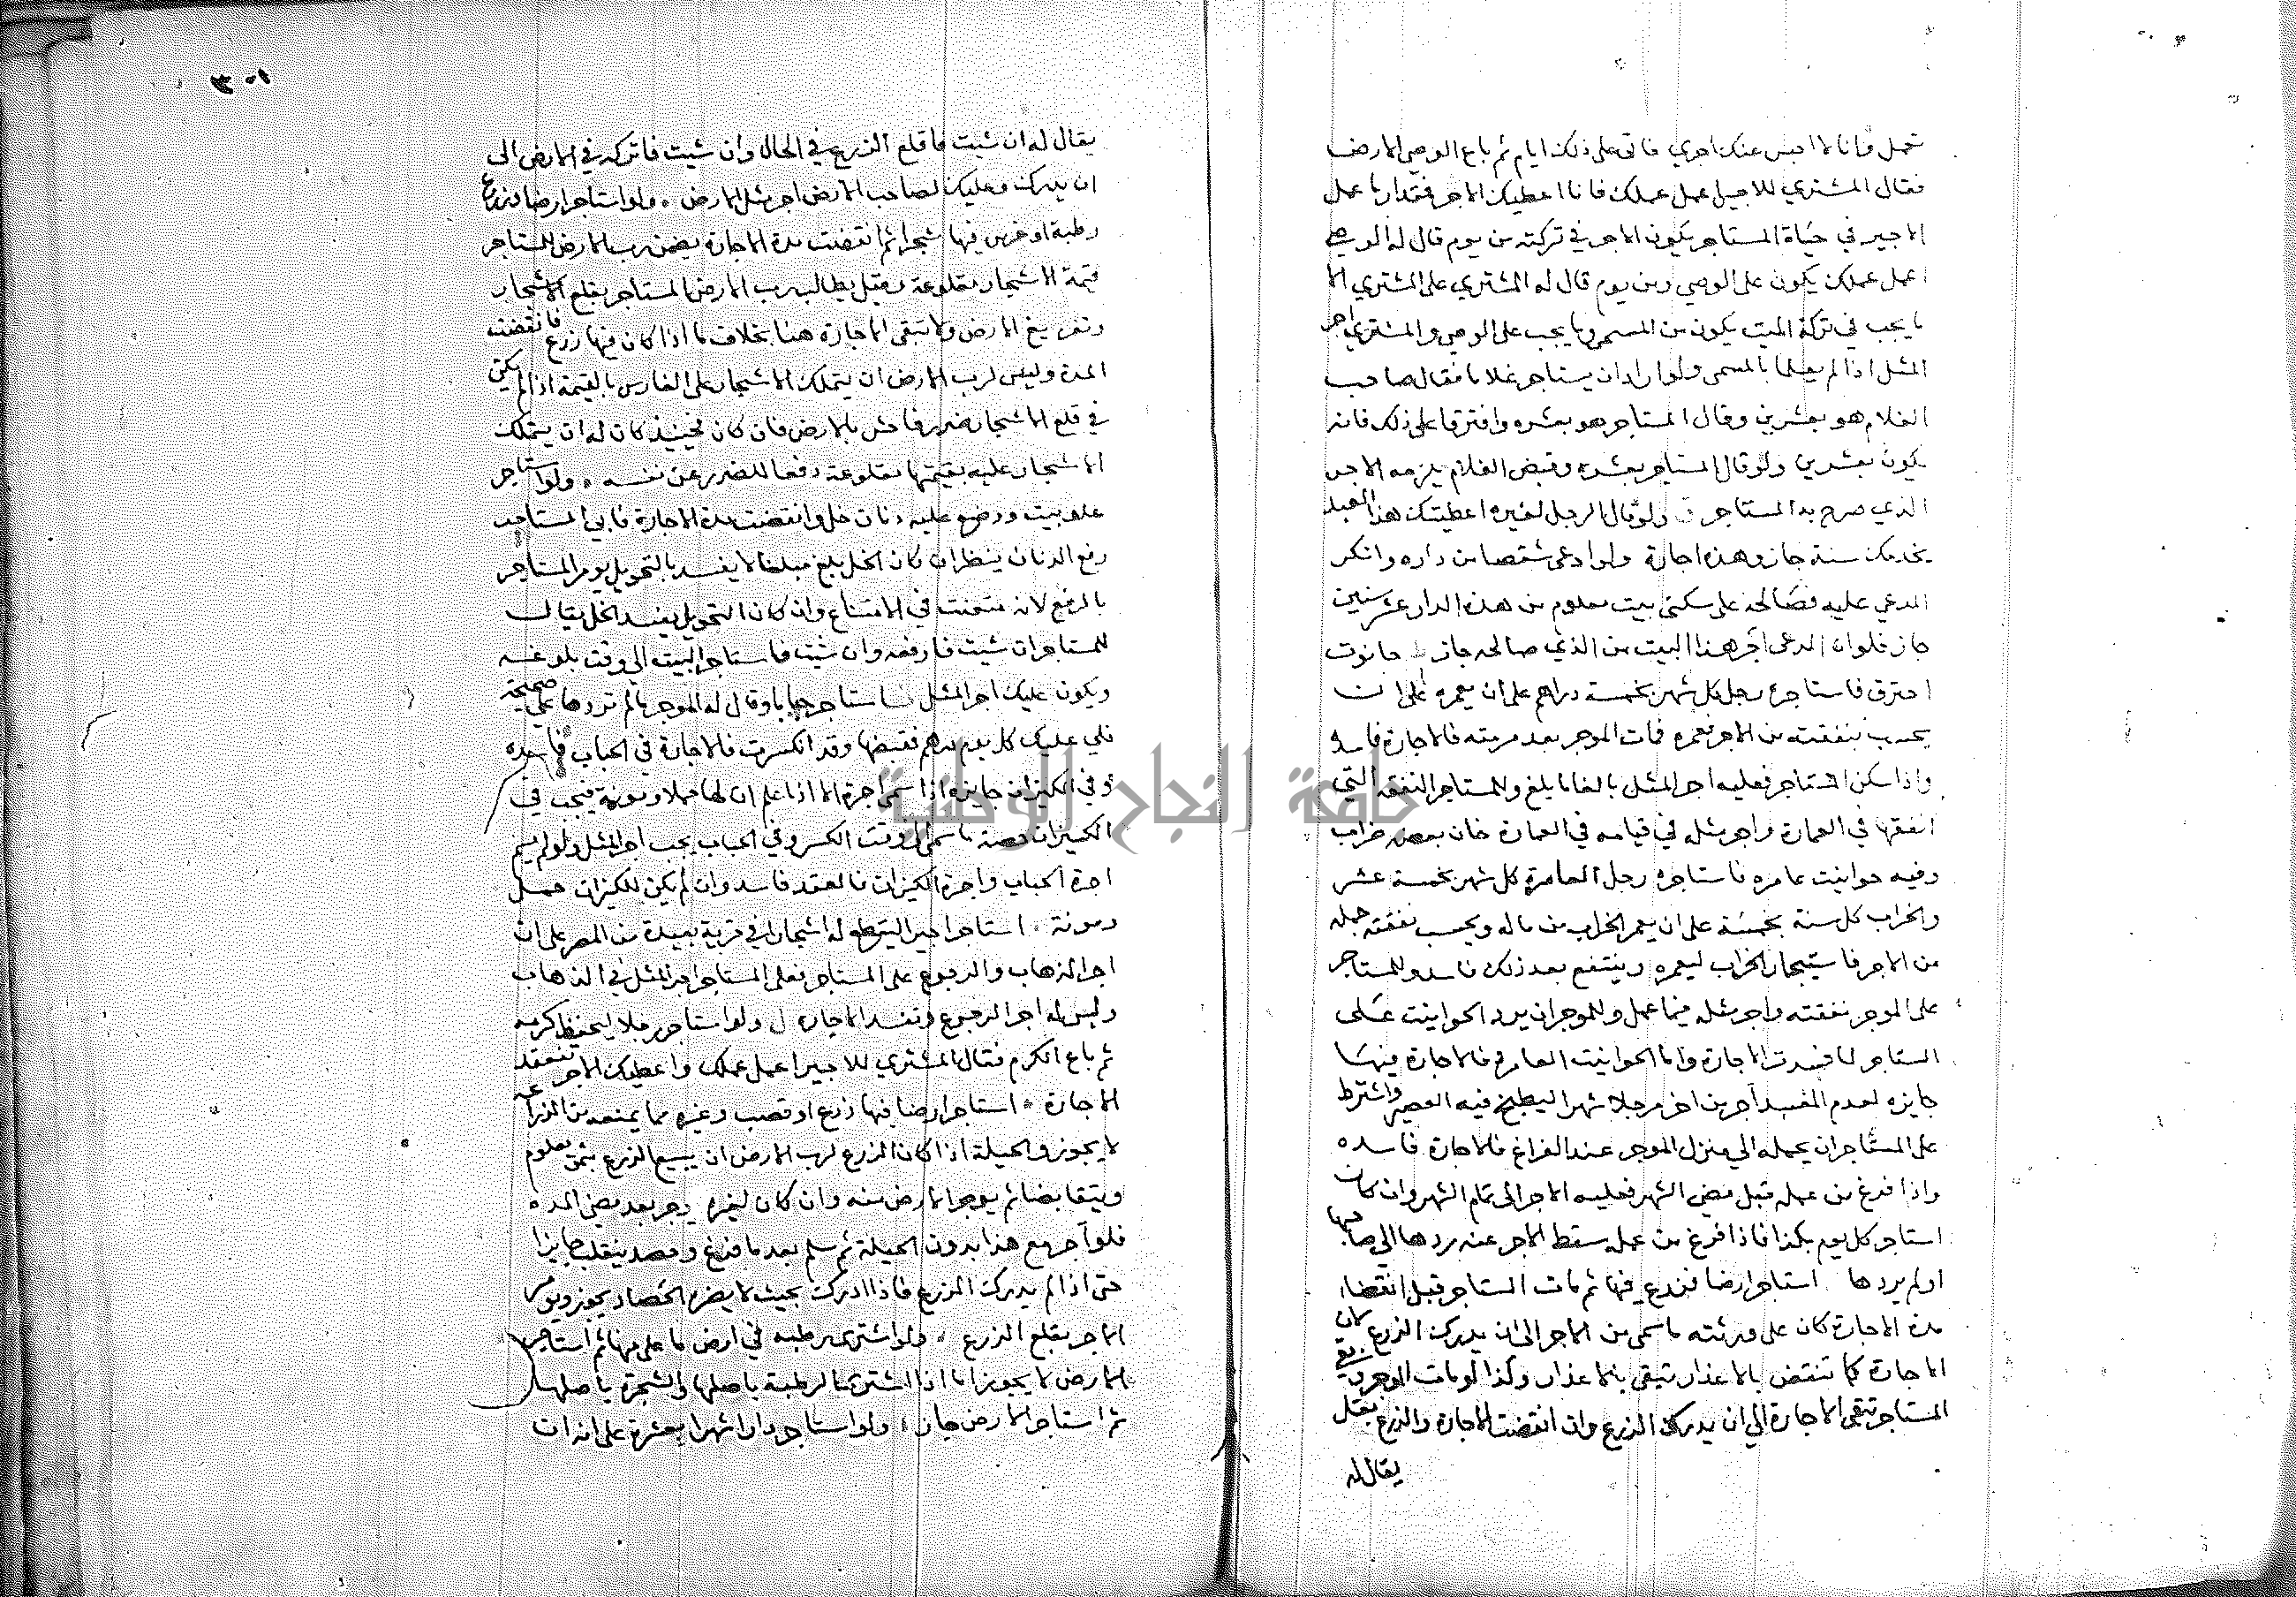 تعمل وانا لا احبس عنك اجري فاتى على ذلك ايام ثم باع الوصي الارض
فقال المشتري للاجير اعمل عملك فانا اعطيك الاجر فمقدار ما عمل
الاجير في حياة المستاجر يكون الاجر في تركته من يوم قال له الوصي
اعمل عملك يكون على الوصي ومن يوم قال له المشتري على المشتري الا
ما يجب في تركة الميت يكون من المسمى وما يجب على الوصي والمشتري اجر
المثل اذا لم يعلما بالمسمى ولو اراد ان يستاجر غلاما فقال صاحب
الغلام هو بعشرين وقال المستاجر هو بعشره وافترقا على ذلك فانه
يكون بعشرين ولو قال المستاجر بعشره وقبض الغلام يلزمه الاجر
الذي صرح به المستاجر ولو قال الرجل لغيره اعطيتك هذا العبد
يخدمك سنة جاز وهذه اجارة ولو ادعى شقصا من داره وانكر
المدعي عليه فصالحه على سكنى بيت معلوم من هذه الدار عشر سنين
جاز فلو ان المدعى اجر هذا البيت من الذي صالحه جاز حانوت
احترق فاستاجره رجل كل شهر بخمسة دراهم على ان يعمره على ان
يحسب نفقته من الاجر فعمره فمات الموجر بعد مرمته فالاجارة فاسدة
واذا سكن المستاجر فعليه اجر المثل بالغا ما بلغ وللمستاجر النفقه التي
انفقها في العمارة واجر مثله في قيامه في العمارة خان بعضه خراب
وفيه حوانيت عامره فاستاجره رجل العامرة كل شهر بخمسة عشر
والخراب كل سنة بخمسة على ان يعمر الخراب من ماله ويحسب نفقته جمله
من الاجر فاستيجار الخراب ليعمره وينتفع بعد ذلك فاسد وللمستاجر
على الموجر نفقته واجر مثله فيما عمل وللموجر ان يرد الحوانيت على
المستاجر لما فسدت الاجارة واما الحوانيت العامرة فالاجارة فيها
جايزه لعدم المفسد آجر من اخر مرجلا شهرا ليطبخ فيه العصير واشترط
على المستاجر ان يحمله الي منزل الموجر عند الفراغ فالاجارة فاسده
واذا فرغ من عمله قبل مضي الشهر فعليه الاجر الى تمام الشهر وان كان
استاجر كل يوم بكذا فاذا فرغ من عمله سقط الاجر عنه ردها الي صاحبها
او لم يردها استاجر ارضا فزرع فيها ثم مات المستاجر قبل انقضاء
مدة الاجارة كان على ورثته ما سمى من الاجر الى ان يدرك الزرع لان
الاجارة كما تنتقض بالاعذار تبقى بالاعذار وكذا لو مات الموجر وبقي
المستاجر تبقى الاجارة الي ان يدرك الزرع وان انقضت الاجارة والزرع بقل
يقال له
٣٠١
يقال له ان شيت فاقلع الزرع في الحال وان شيت فاتركه في الارض الى
ان يدرك وعليك لصاحب الارض اجر مثل الارض ولو استاجر ارضا فزرع
رطبة او غرس فيها شجرا ثم انقضت مدة الاجارة يضمن رب الارض للمستاجر
قيمة الاشجار مقلوعة وقيل يطالب رب الارض المستاجر بقلع الاشجار
وتفريغ الارض ولا تبقى الاجارة هنا بخلاف ما اذا كان فيها زرع فانقضت
المدة وليس لرب الارض ان يتملك الاشجار على الغارس بالقيمة اذا لم يكن
في قلع الاشجار ضرر فاحش بالارض فان كان فحينئذ كان له ان يتملك
الاشجار عليه بقيمتها مقلوعة دفعا للضرر عن نفسه ولو استاجر
علو بيت ووضع عليه دنان خل وانقضت مدة الاجارة فابى المستاجر
رفع الدنان ينظر ان كان الخل بلغ مبلغا لا يفسد بالتحويل يومر المستاجر
بالرفع لانه متعنت في الامتناع وان كان التحويل يفسد الخل يقال
للمستاجر ان شيت فارفعه وان شيت فاستاجر البيت الي وقت بلوغه
ويكون عليك اجر المثل استاجر حبابا وقال له الموجر ما لم تردها علي صحيحة
فلي عليك كل يوم درهم فقبضها وقد انكسرت فالاجارة في الحباب فاسده
وفي الكيزان جايزه اذا سمى اجرة الا اذا علم ان لها حملا ومونة فيجب في
الكيزان حصة ما سمى الى وقت الكسر وفي الحباب يجب اجر المثل ولو لم يسم
اجرة الحباب واجرة الكيزان فالعقد فاسد وان لم يكن للكيزان حمل
ومونة استاجر اجيرا ليقطع له اشجارا في قرية بعيدة من المصر على ان
اجر الذهاب والرجوع على المستاجر فعلى المستاجر اجر المثل في الذهاب
وليس له اجر الرجوع وتفسد الاجاره ولو استاجر رجلا ليحفظ كرمه
ثم باع الكرم فقال المشتري للاجير اعمل عملك واعطيك الاجر تنعقد
الاجارة استاجر ارضا فيها زرع او قصب وغيره مما يمنعه من الزراعة
لا يجوز والحيلة اذا كان الزرع لرب الارض ان يبيع الزرع بثمن معلوم
ويتقابضا ثم يوجر الارض منه وان كان لغيره يوجر بعد مضي المده
فلو آجر مع هذا بدون الحيلة ثم سلم بعد ما فرغ وحصد ينقلب جايزا
حتى اذا لم يدرك الزرع فاذا ادرك بحيث لا يضره الحصاد يجوز ويومر
الاجر بقلع الزرع ولو اشترى رطبه في ارض ثم استاجر
الارض لا يجوز اما اذا اشترى الرطبة باصلها والشجرة باصلها
ثم استاجر الارض جاز ولو استاجر دارا شهرا بعشرة على انه ان
جامعة النجاح الوطنية